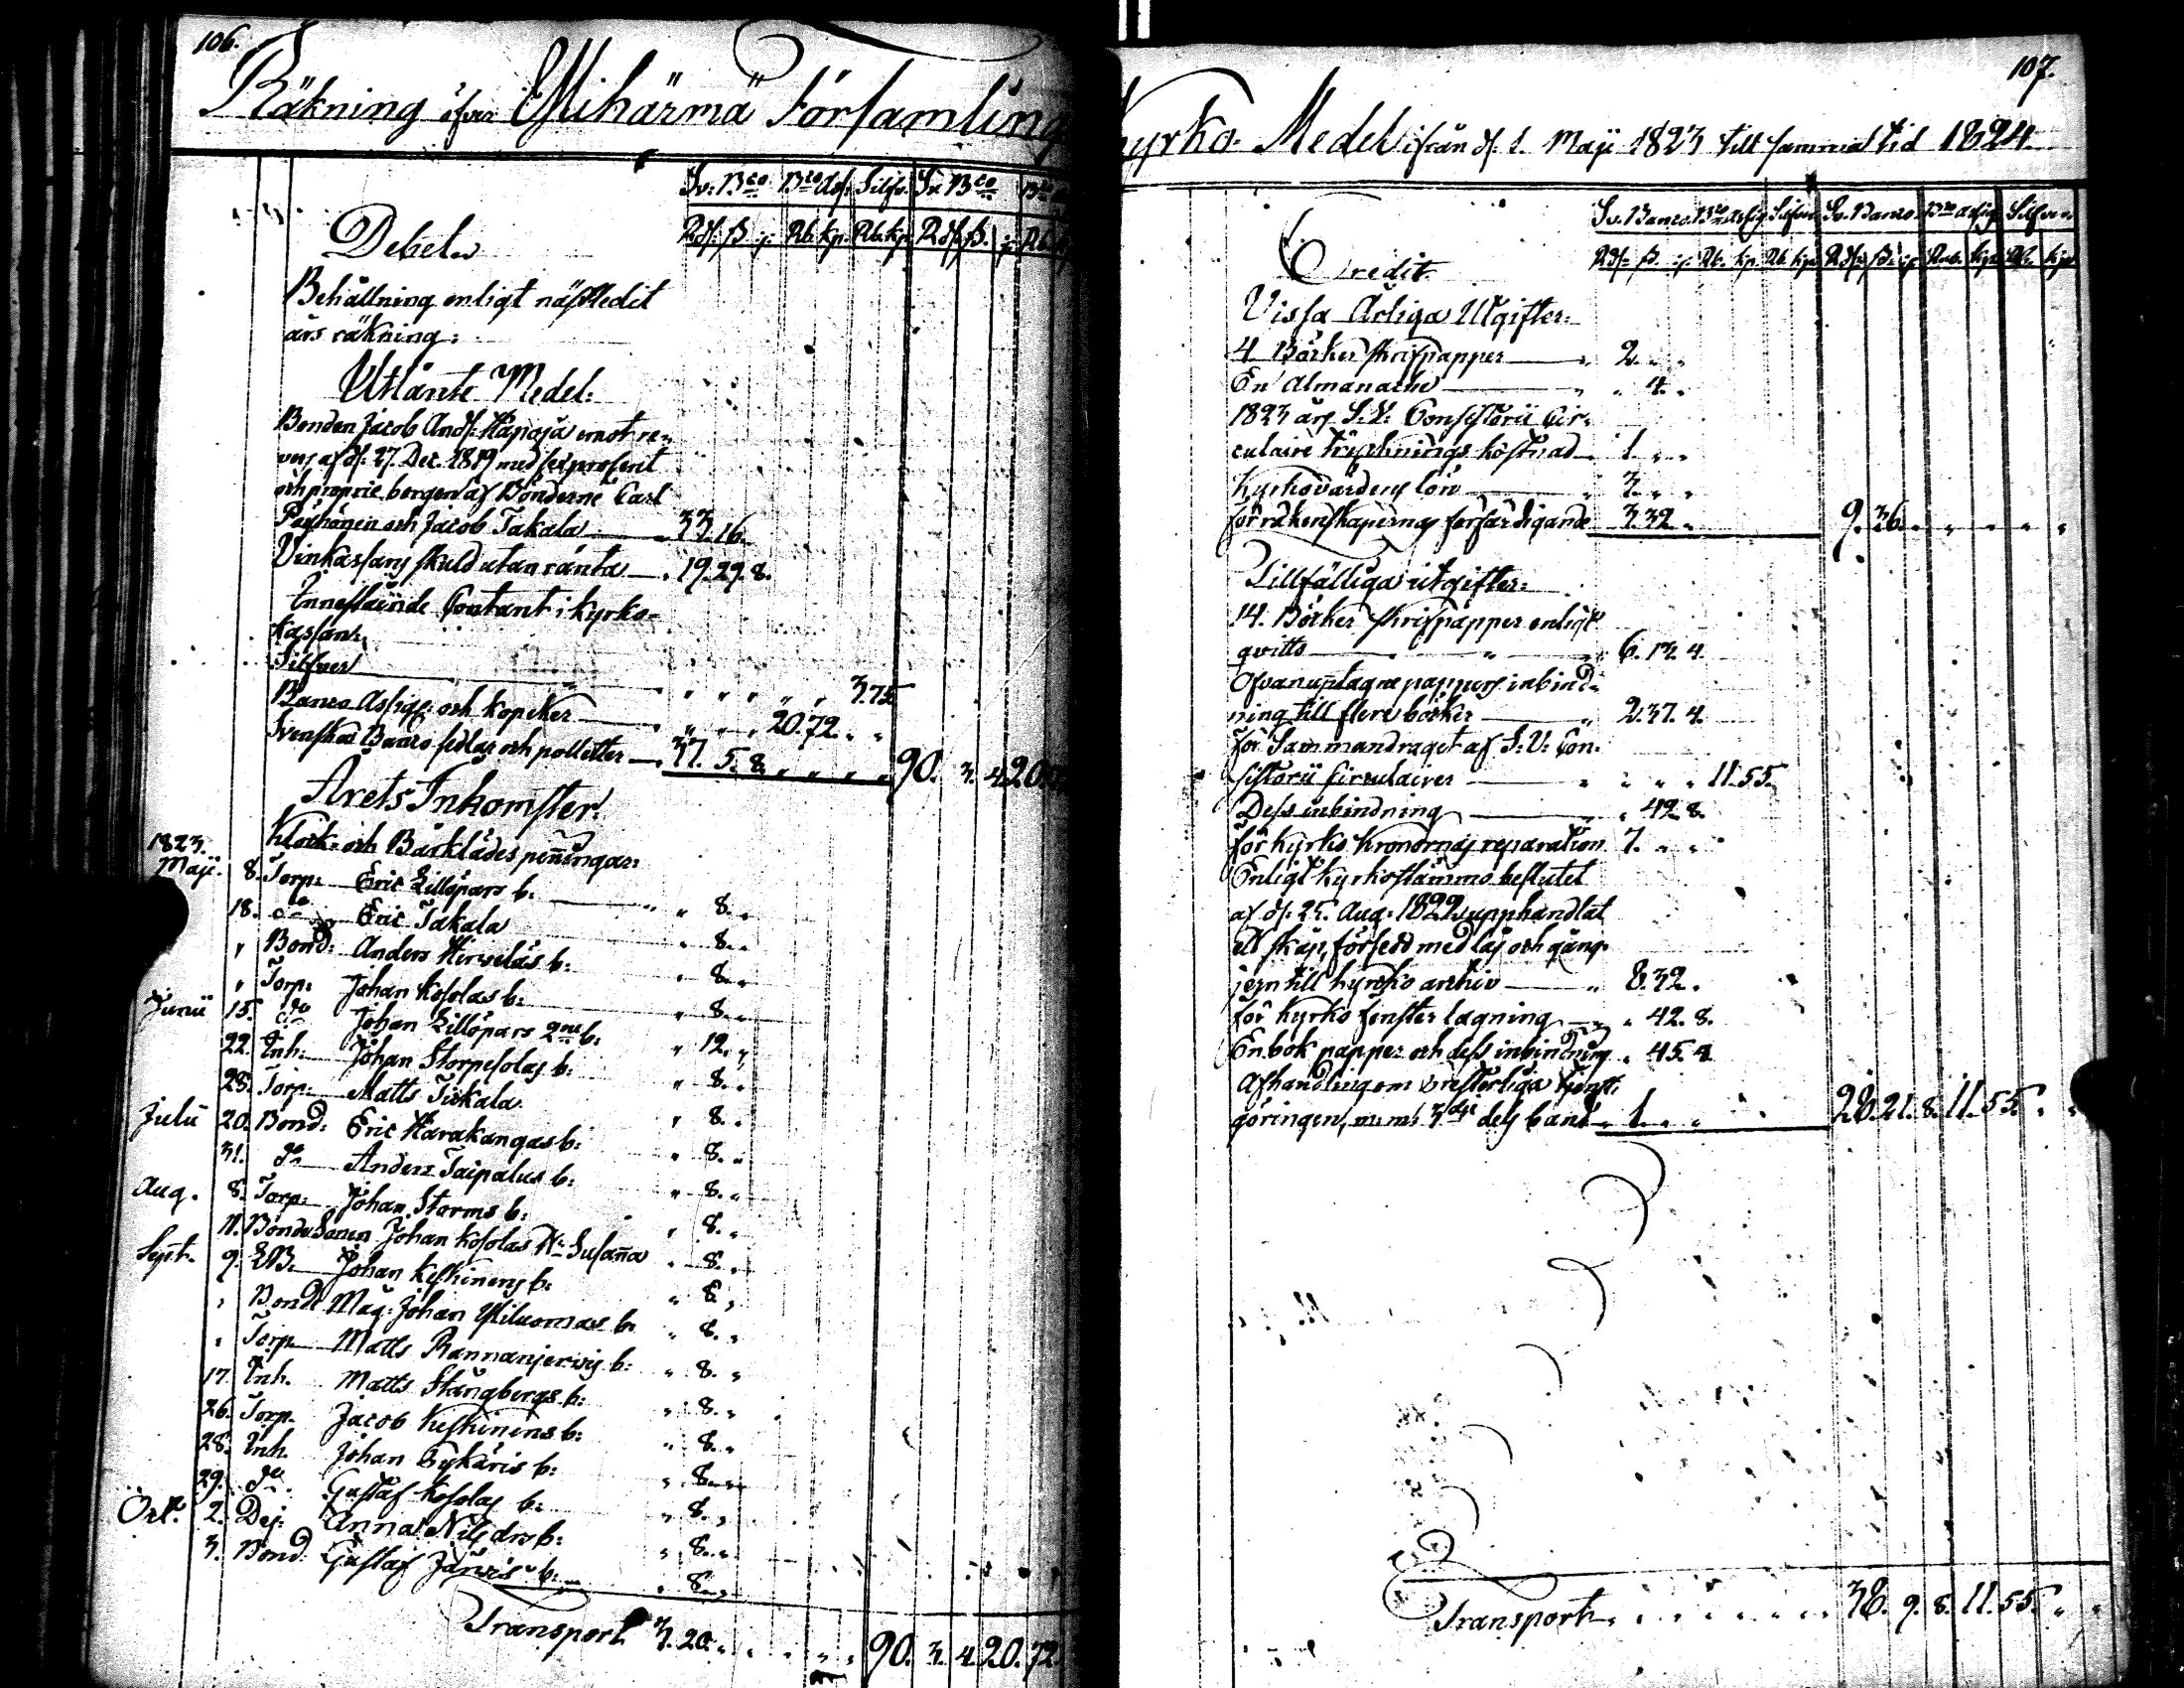 106.
Räkning öfver Ylihärmä Församling
Sv: Bco Bco Ass: Silfv. Sv. Bco Bco
Rd: ß. Rb. kp. Rb. kp. Rd: ß. Rb.
Debet.
Behållning enligt nästledit
års räkning:
Utlånte Medel:
Bonden Jacob Ands: Håpoja emot re-
vers af d: 27. Dec. 1819 med sex procent
och proprie borgen af Bönderne Carl
och Jacob Takala 33. 16.
Vinkassans skuld utan ränta 19. 29. 8.
Innestående Contant i kyrko-
kassan:
Silfver 3. 75.
Banco Assign: och kopeker 20. 72.
Svenska Banco sedlar och polletter 37. 5. 8. 90. 3. 4. 20.
Årets Inkomster.
1823. Klock- och Bårklädes penningar:
Maji. 8. Torp: Eric Lillöpars b: 8.
18. do Eric Takala 8.
" Bond: Anders Hirvelas b: 8.
" Torp: Johan Kosolas b: 8.
Junii 15. do Johan Lillöpars 2ne b: 12.
22. Inh: Johan Storpesolas b: 8.
28. Torp: Matts Takala 8.
Julii 20. Bond: Eric Harakangas b: 8.
31. do Anders Taipalus b: 8.
Aug. 8. Torp: Johan Storms b: 8.
11. BondeSonen Johan Kosolas H: Susanna 8.
Sept. 9. Johan Keskinens b: 8.
" Bonde Mag: Johan Yliluomas b: 8.
" Torp. Matts Rannanjervis b: 8.
17. Inh. Matts Stångbergs b: 8.
26. Torp. Jacob Keskinens b: 8.
28. Inh. Johan b: 8.
29. do Gustaf Kosolas b: 8.
Oct. 2. Dej: Anna Nils dr b: 8.
3. Bond: Gustaf Järvis b: 8.
Transport 3. 20. 90. 3. 4. 20. 72.
107.
Kyrko-Medel ifrån d: 1. Maji 1823 till samma tid 1824.
Sv. Banco. Bco Assig Silfver Sv. Banco. Bco assig Silfver
Rd: ß. Rb. kp. Rb. kp. Rd: ß. Rub. kp. Rb. kp
Credit
Vissa Årliga Utgifter:
4 Böcker skrifpapper 2.
En Almanacha 4.
1823 års S: V: Consistorii Cir-
culaire trycknings kostnad 1.
Kyrkovärdens lön 3.
för räkenskapernas förfärdigande 3. 32. 9. 36.
Tillfälliga utgifter:
14. Böcker skrifpapper enligt
qvitto 6. 13. 4.
Ofvanupptagne pappers inbind-
ning till flere böcker 2. 37. 4.
för Sammandraget af S: V: Con-
sistorii Circulairer 11. 55.
Dess inbindning 42. 8.
för kyrko kronornas reparation 7.
Enligt kyrkostämmo beslutet
af d: 25. Aug: 1822 upphandlat
ett skåp, försedd med lås och gång-
jern till kyrko archiv 8. 32.
för kyrko fenster lagning 42. 8.
En bok papper och dess inbindning 45. 8
Afhandling om presterliga tjenst-
göringen, 3dje dels band 1. 28. 21. 8. 11. 55.
Transport 38. 9. 8. 11. 55.